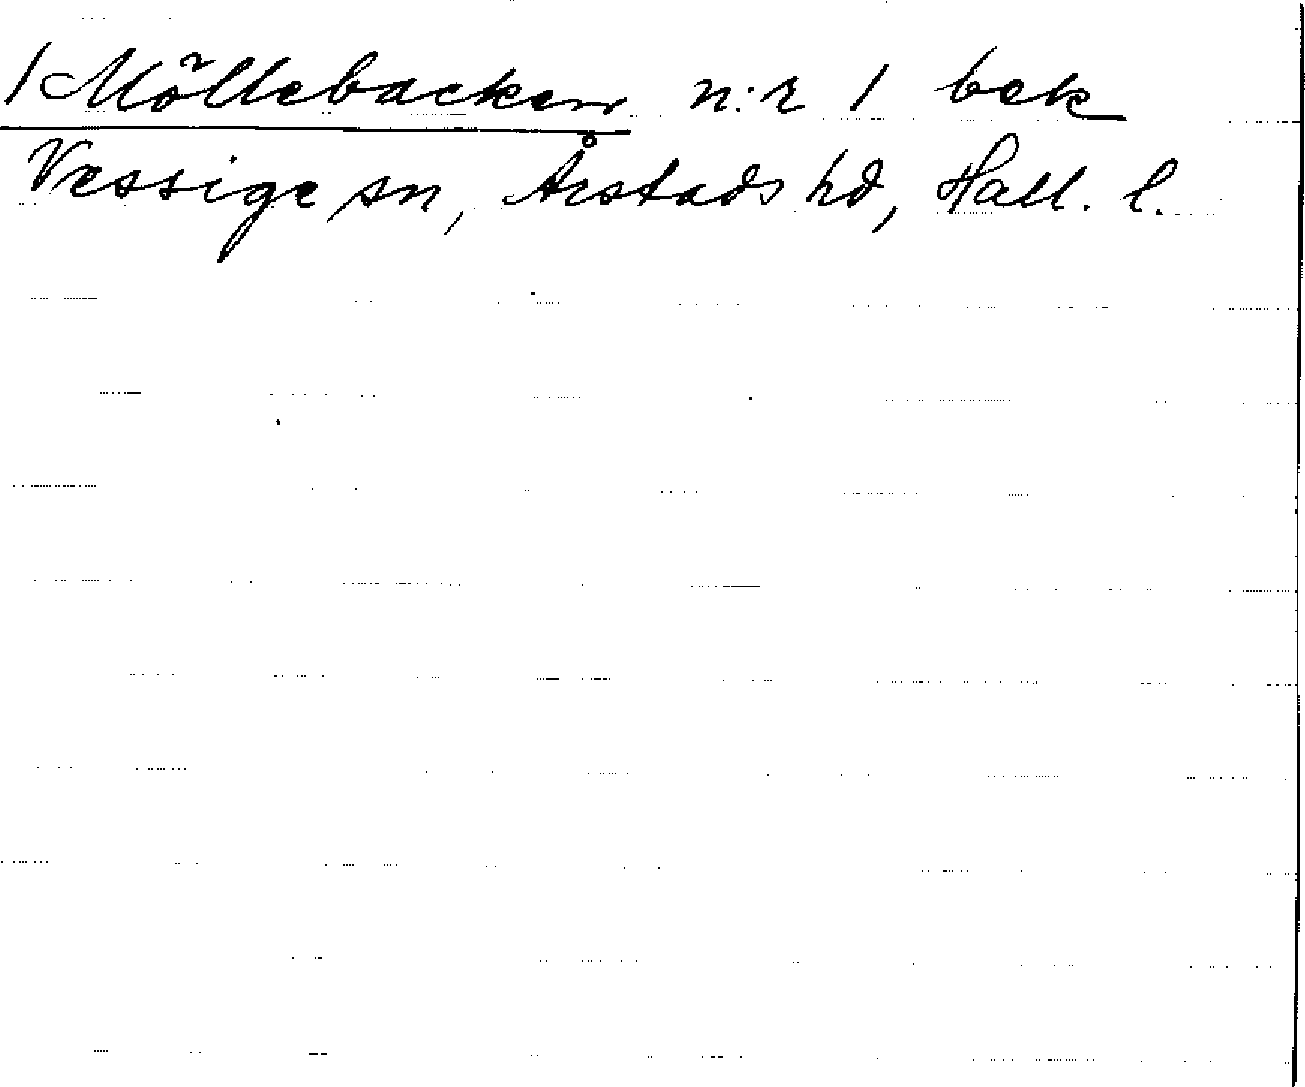 1 Möllebacken n:r 1 bek
Vessige sn, Årstads hd, Hall. l.